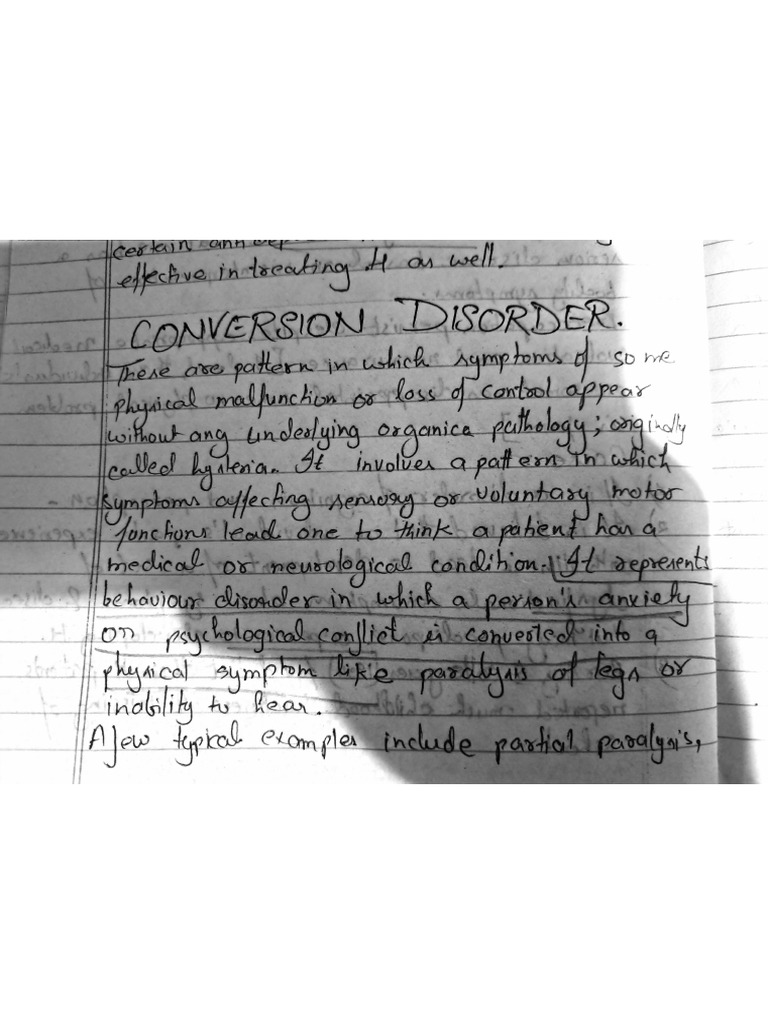 certain
effective in treating it as well.
CONVERSION DISORDER.
These are pattern in which symptoms of some
physical malfunction or loss of control appear
without any underlying organica pathology; originally
called hysteria. It involves a pattern in which
symptoms affecting sensory or voluntary motor
functions lead one to think a patient has a
medical or neurological condition. It represents
behaviour disorder in which a person's anxiety
or psychological conflict is converted into a
physical symptom like paralysis of legs or
inability to hear.
A few typical examples include partial paralysis,